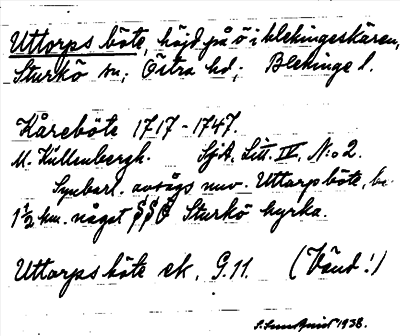 Uttorps böte, höjd på ö i blekingeskären,
Sturkö sn; Östra hd; Blekinge l.
Kåreböte 1717-1747.
M. Kullenbergh. SjA, Litt. IV, N:o 2.
Synbarl. avsågs nuv. Uttorpböte, be.
1½ km. något SSO Sturkö kyrka.
Uttorpsböte ek. G.11. (Vänd!)
S. Sundquist 1938.